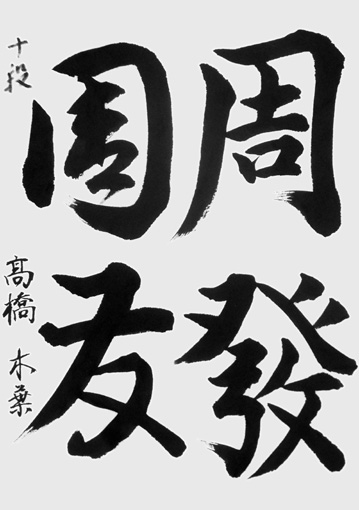 周發
友
十段 髙橋木葉